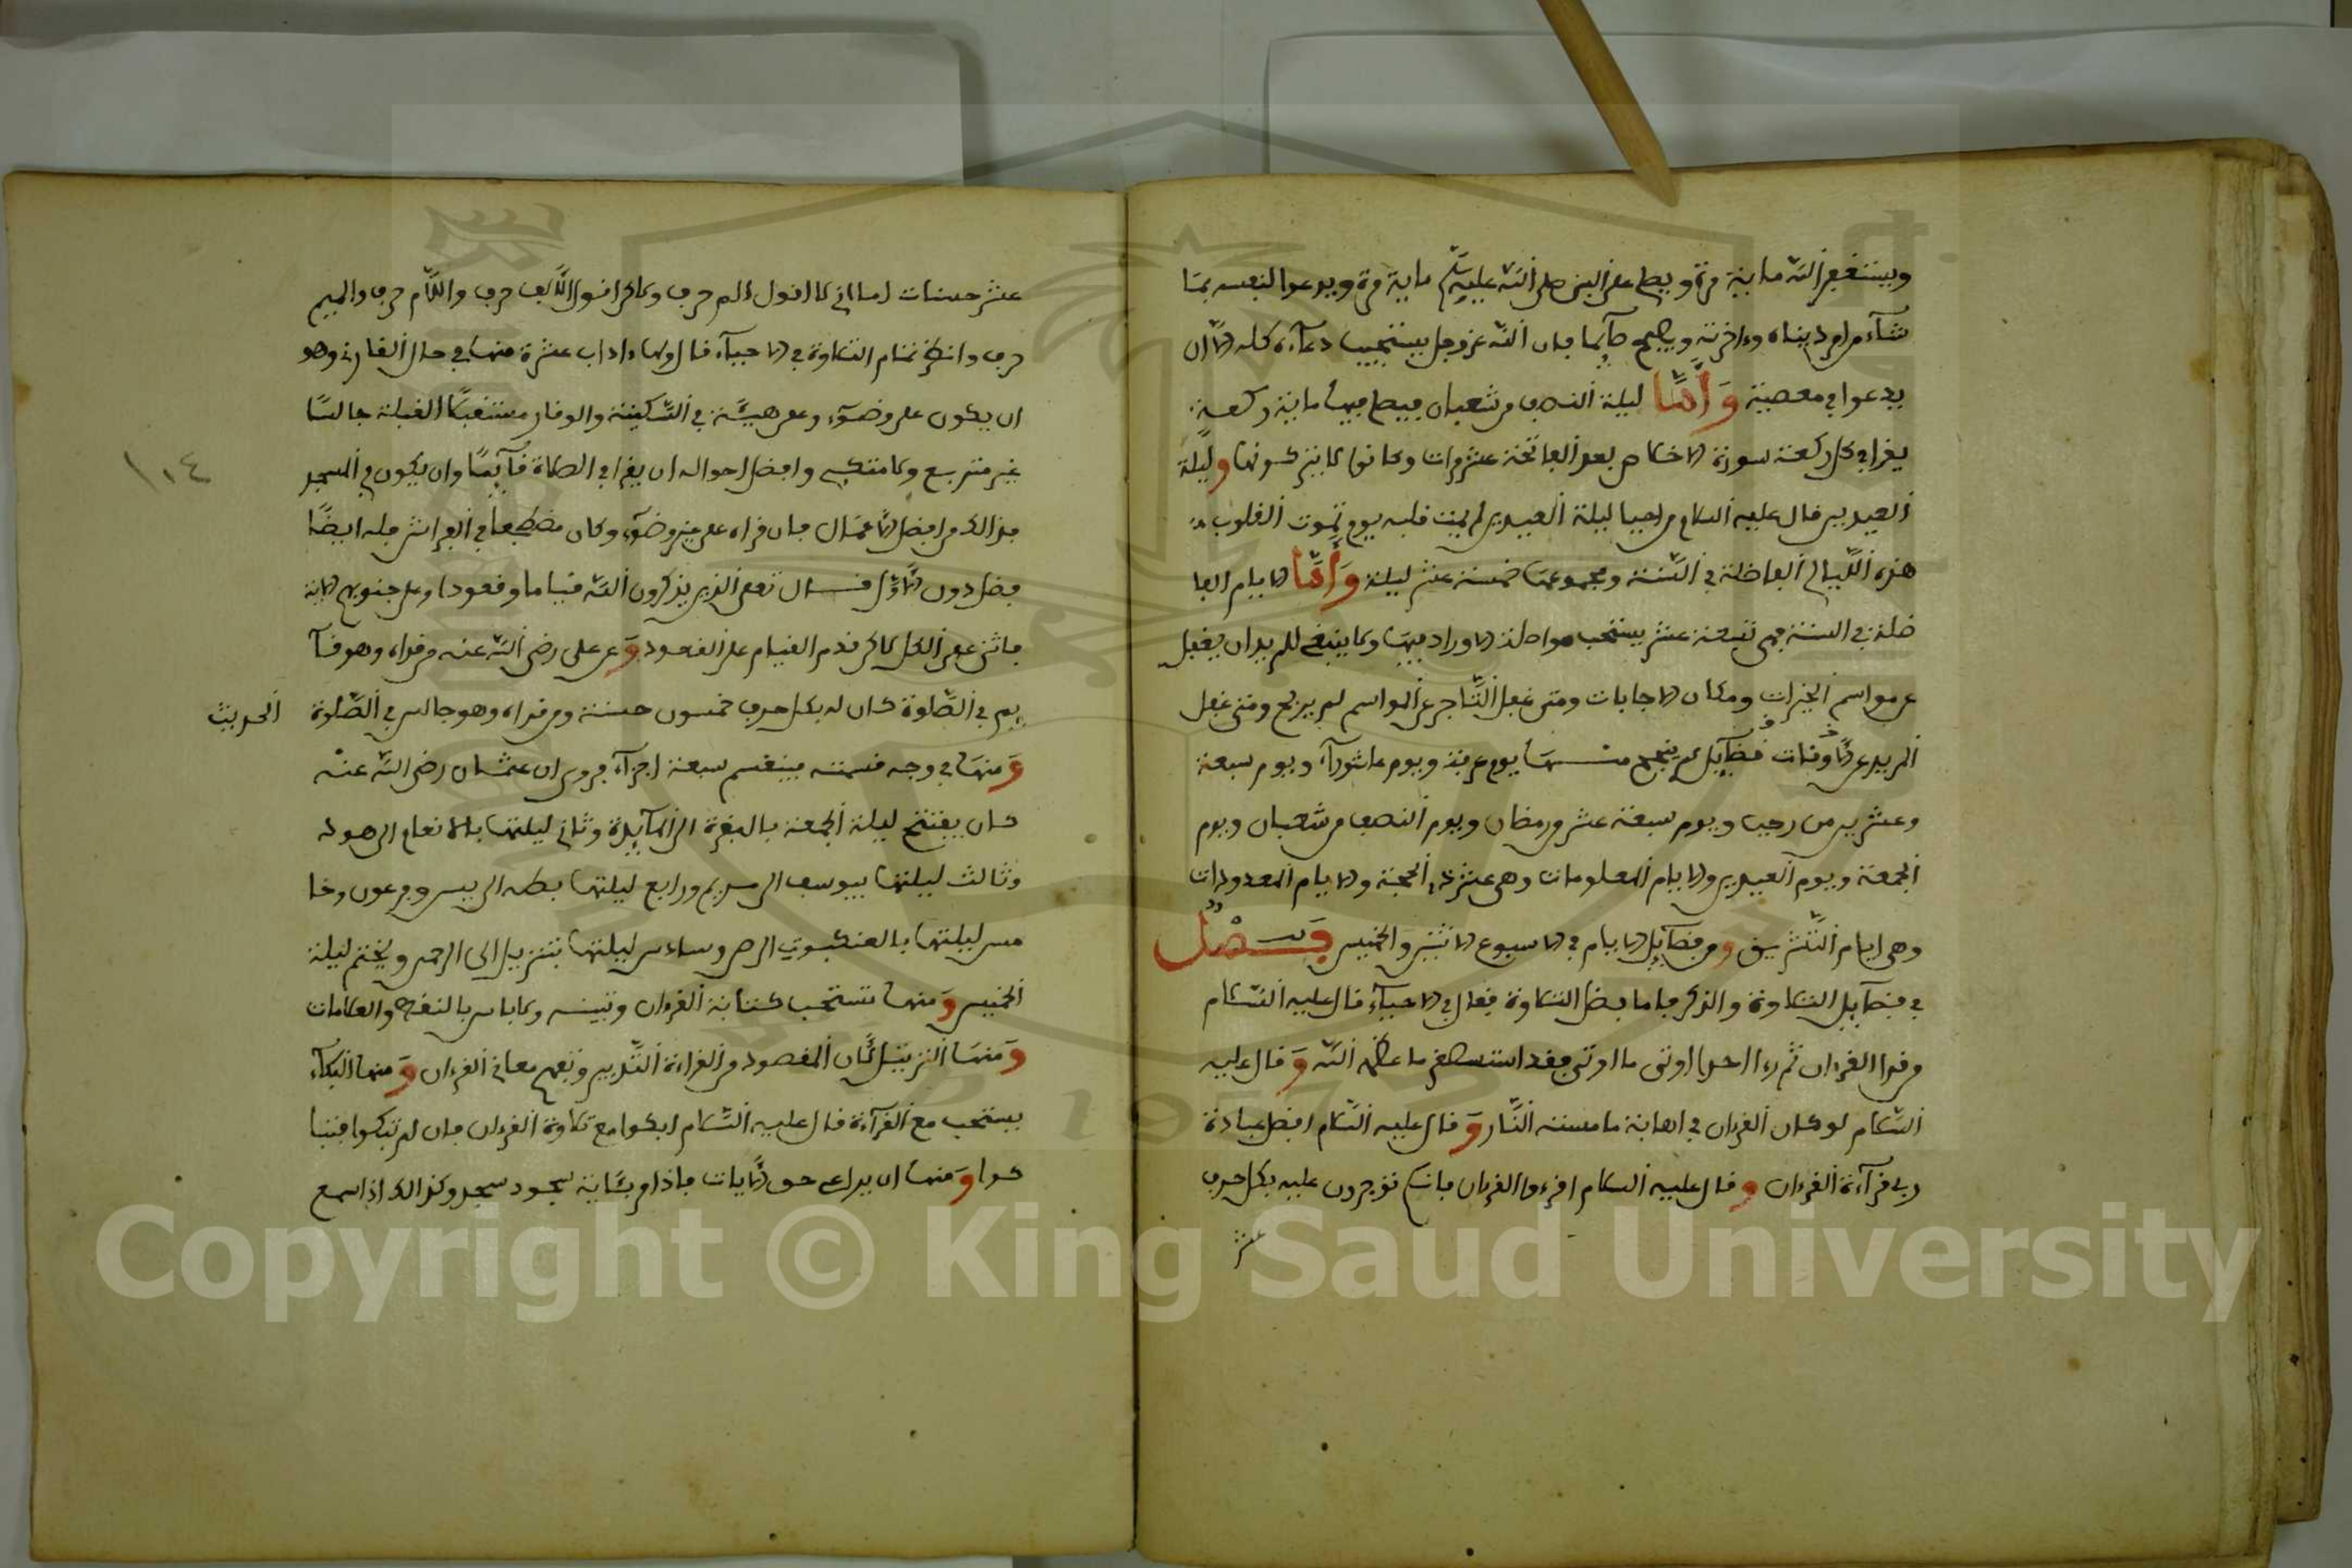 ويستغفر الله ماية مرة ويصلي على النبي صلى الله عليه وسلم ماية مرة ويدعوا لنفسه بما
شآء من امر دنياه وءاخرته ويصبح صآئما فان الله عز وجل يستجيب دعآءه كله الا ان
يدعوا في معصية وأما ليلة النصف من شعبان فيصلي فيها ماية ركعة
يقرا في كل ركعة سورة الاخلاص بعد الفاتحة عشر مرات وكانوا لا يتركونها وليلة
العيدين قال عليه السلام من احيا ليلة العيدين لم يمت قلبه يوم تموت القلوب
هذه الليالي الفاضلة في السنة ومجموعها خمسة عشر ليلة وأما الايام الفا
ضلة في السنة فهي تسعة عشر يستحب مواصلة الاوراد فيها ولا ينبغي للمريد ان يغفل
عن مواسم الخيرات ومكان الاجابات ومتى غفل التاجر عن المواسم لم يربح ومتى غفل
المريد عن الاوقات فضآيل لم ينجح منها يوم عرفة ويوم عاشورآء ويوم سبعة
وعشرين من رجب ويوم سبعة عشر من رمضان ويوم النصف من شعبان ويوم
الجمعة ويوم العيدين والايام المعلومات وهي عشر ذي الحجة والايام المعدودات
وهي ايام التشريق ومن فضآيل الايام في الاسبوع الاثنين والخميس فصل
في فضآيل التلاوة والذكر فاما فضل التلاوة فقال في الاحيآء قال عليه السلام
من قرا القرءان ثم رءا ان احدا اوتي ما اوتي فقد استصغر ما عظم الله وقال عليه
السلام لو كان القرءان في اهابة ما مسته النار وقال عليه السلام افضل عبادة
ربي قرآءة القرءان وقال عليه السلام اقرءوا القرءان فانكم توجرون عليه بكل حرف
عشر
عشر حسنات اما اني لا اقول الم حرف ولاكن اقول الالف حرف واللام حرف والميم
حرف وانظر تمام التلاوة في الاحيآء قال ولها ءاداب عشرة منها في حال القارئ وهو
ان يكون على وضوء وعلى هيئة في السكينة والوقار مستقبلا القبلة جالسا
غير متربع ولا متكئ وافضل احواله ان يقرا في الصلاة قآيما وان يكون في المسجد
فذالك من افضل الاعمال فان قراه على غير وضوء وكان مضطجعا في الفراش فله ايضا
فضل دون الاول قال تعلى الذين يذكرون الله قياما وقعودا وعلى جنوبهم الاية
فاثنى على الكل لاكن قدم القيام على القعود وعن علي رضي الله عنه من قراه وهو قآ
يم في الصلوة كان له بكل حرف خمسون حسنة ومن قراه وهو جالس في الصلوة الحديث
ومنها في وجه قسمته فينقسم سبعة اجزآء فروي ان عثمان رضي الله عنه
كان يفتتح ليلة الجمعة بالبقرة الى المآيدة وثاني ليلتها بالانعام الى هود
وثالث ليلتها بيوسف الى مريم ورابع ليلتها بطه الى طسم وفرعون وخا
مس ليلتها بالعنكبوت الى ص وسادس ليلتها بتنزيل الى الرحمن ويختم ليلة
الخميس ومنها تستحب كتابة القرءان وتبينه ولا باس بالنقط والعلامات
ومنها الترتيل لان المقصود من القراءة التدبر وتفهم معاني القرءان ومنها البكآء
يستحب مع القرآءة قال عليه السلام ابكوا مع تلاوة القرءان فان لم تبكوا فتبا
كوا ومنها ان يراعي حق الايات فاذا مر بئاية سجود سجد وكذالك اذا سمع
١١٤
Copyright © King Saud University
1957